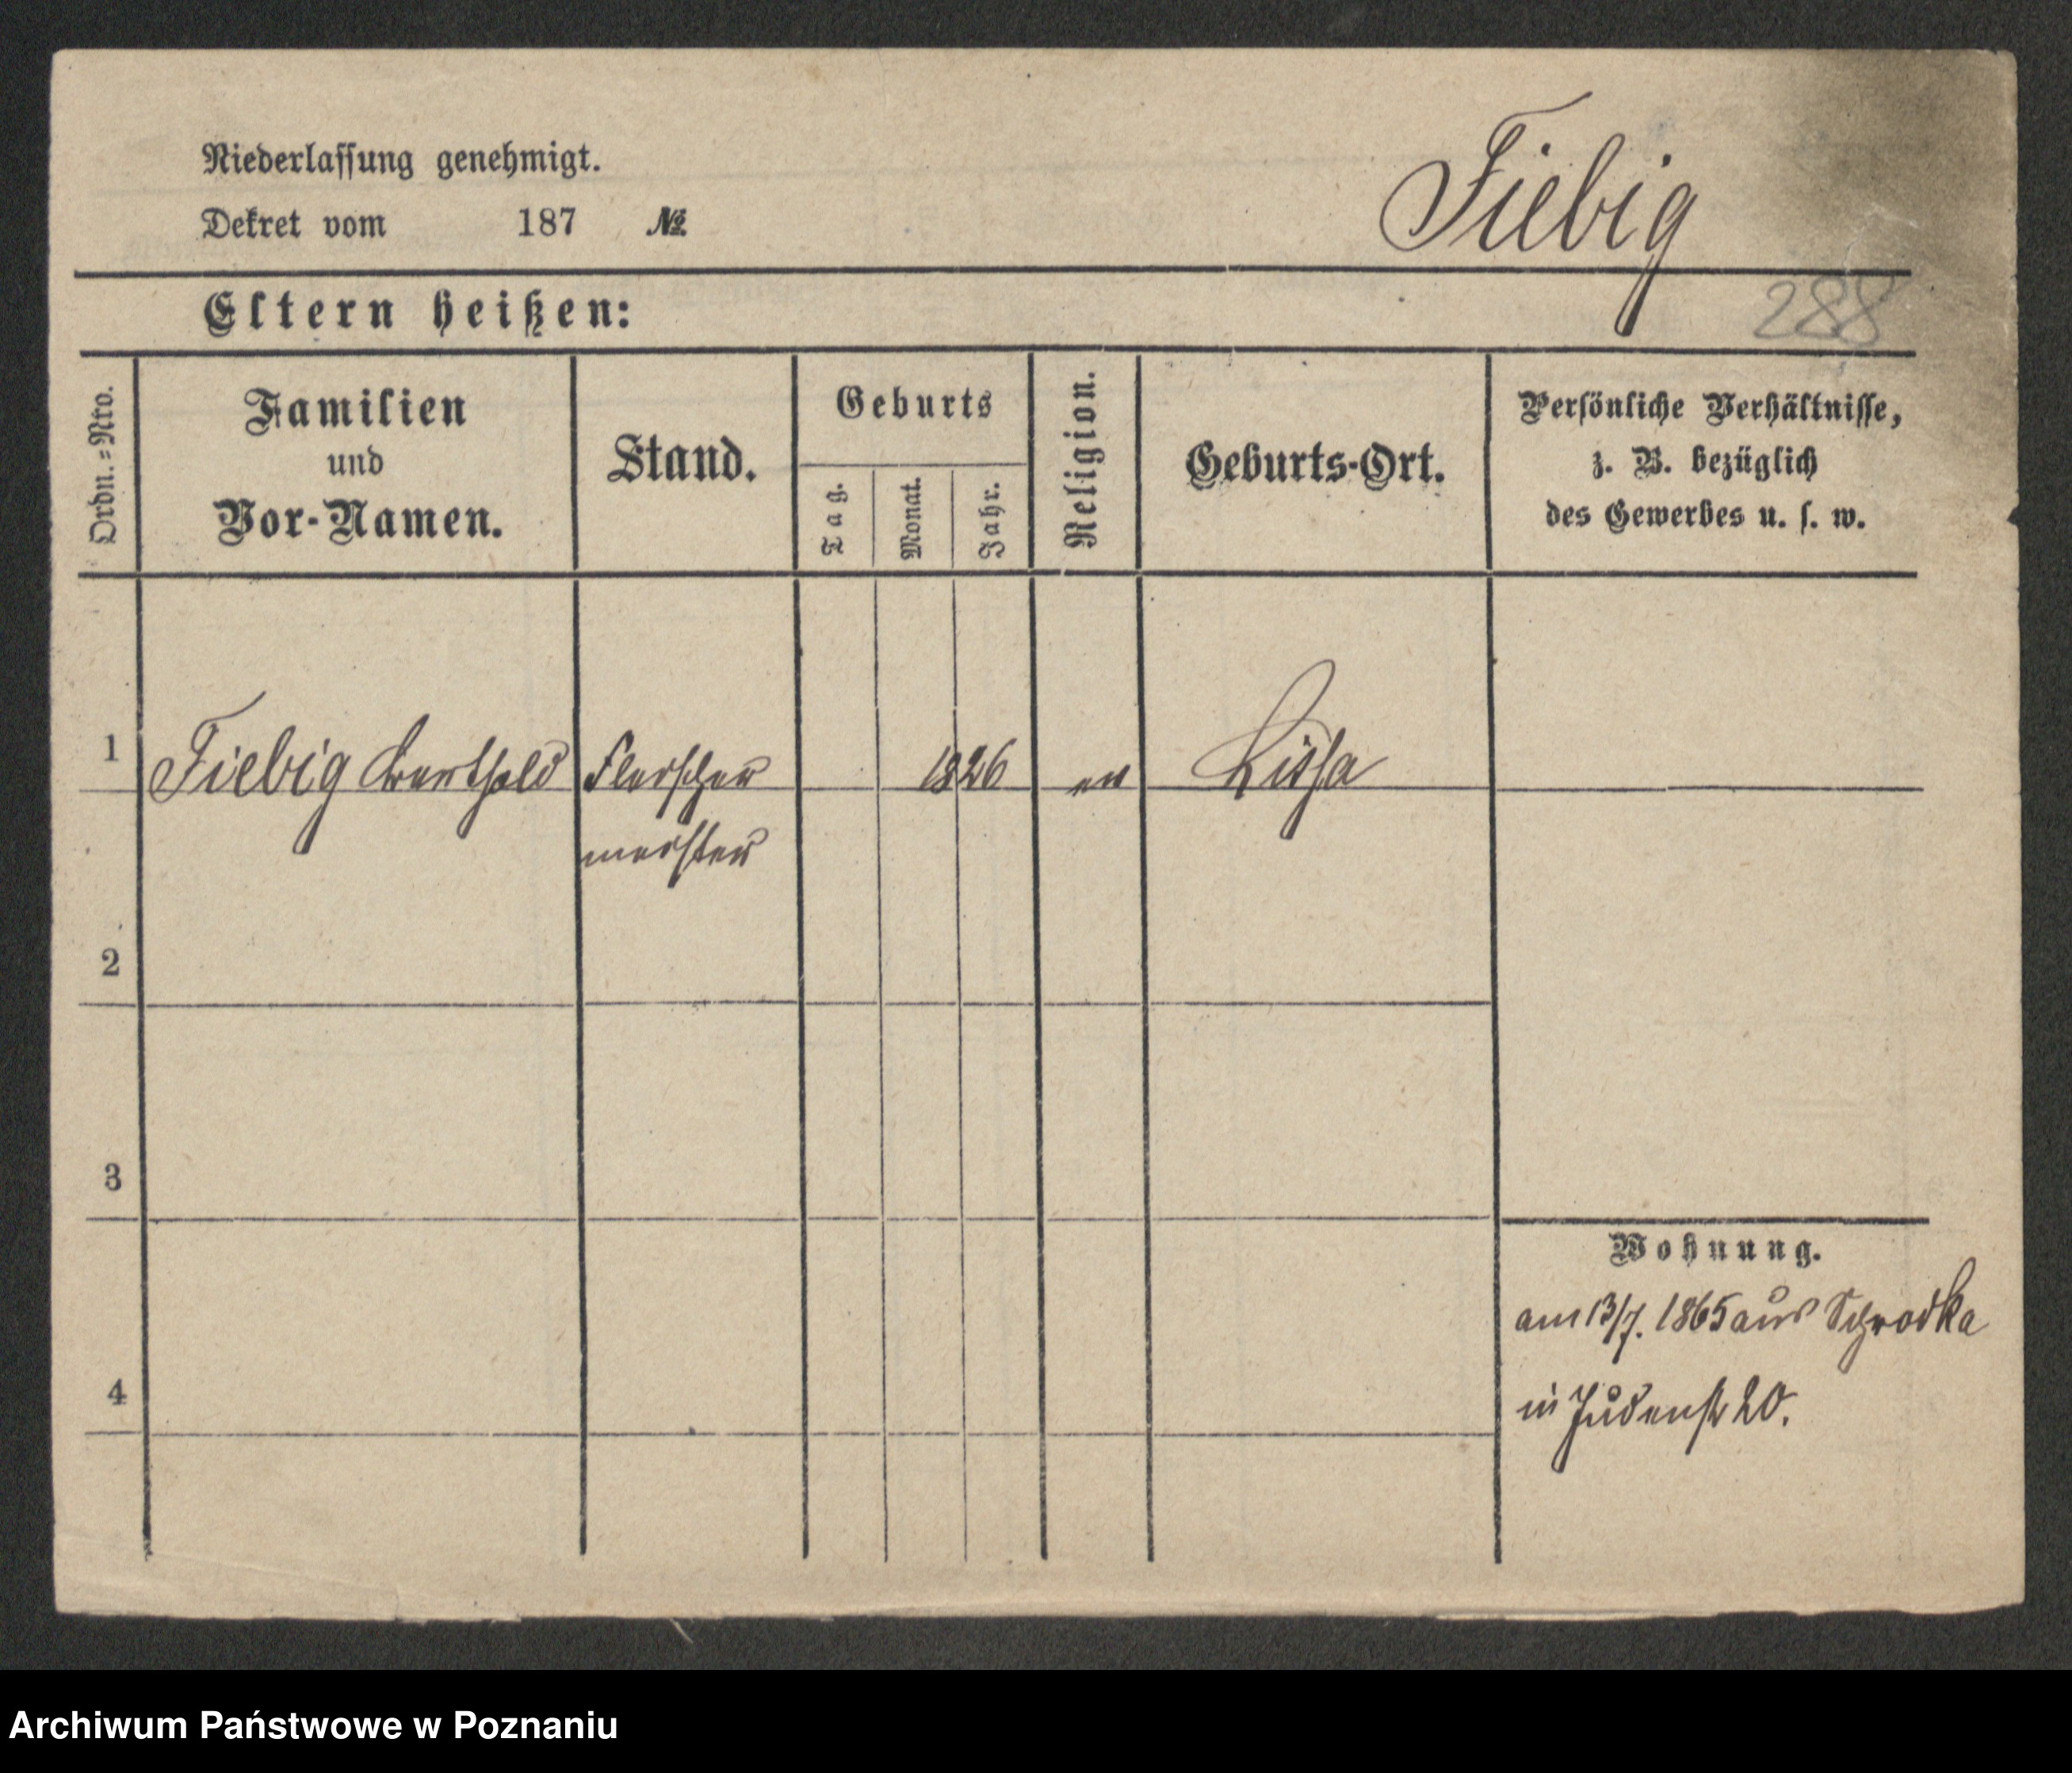 Niederlassung genehmigt.
Dekret vom 187 №
Fiebig
Eltern heißen:
288
Ordn.=Nro.
Familien
und
Vor-Namen.
Stand.
Geburts
Tag.
Monat.
Jahr.
Religion.
Geburts-Ort.
Persönliche Verhältnisse,
z. B. bezüglich
des Gewerbes u. s. w.
1 Fiebig Berthold Fleischer 1826 ev Lissa
meister
2
3
Wohnung.
am 13/7. 1865 aus Schrodka
4
in Judenstr 20.
Archiwum Państwowe w Poznaniu